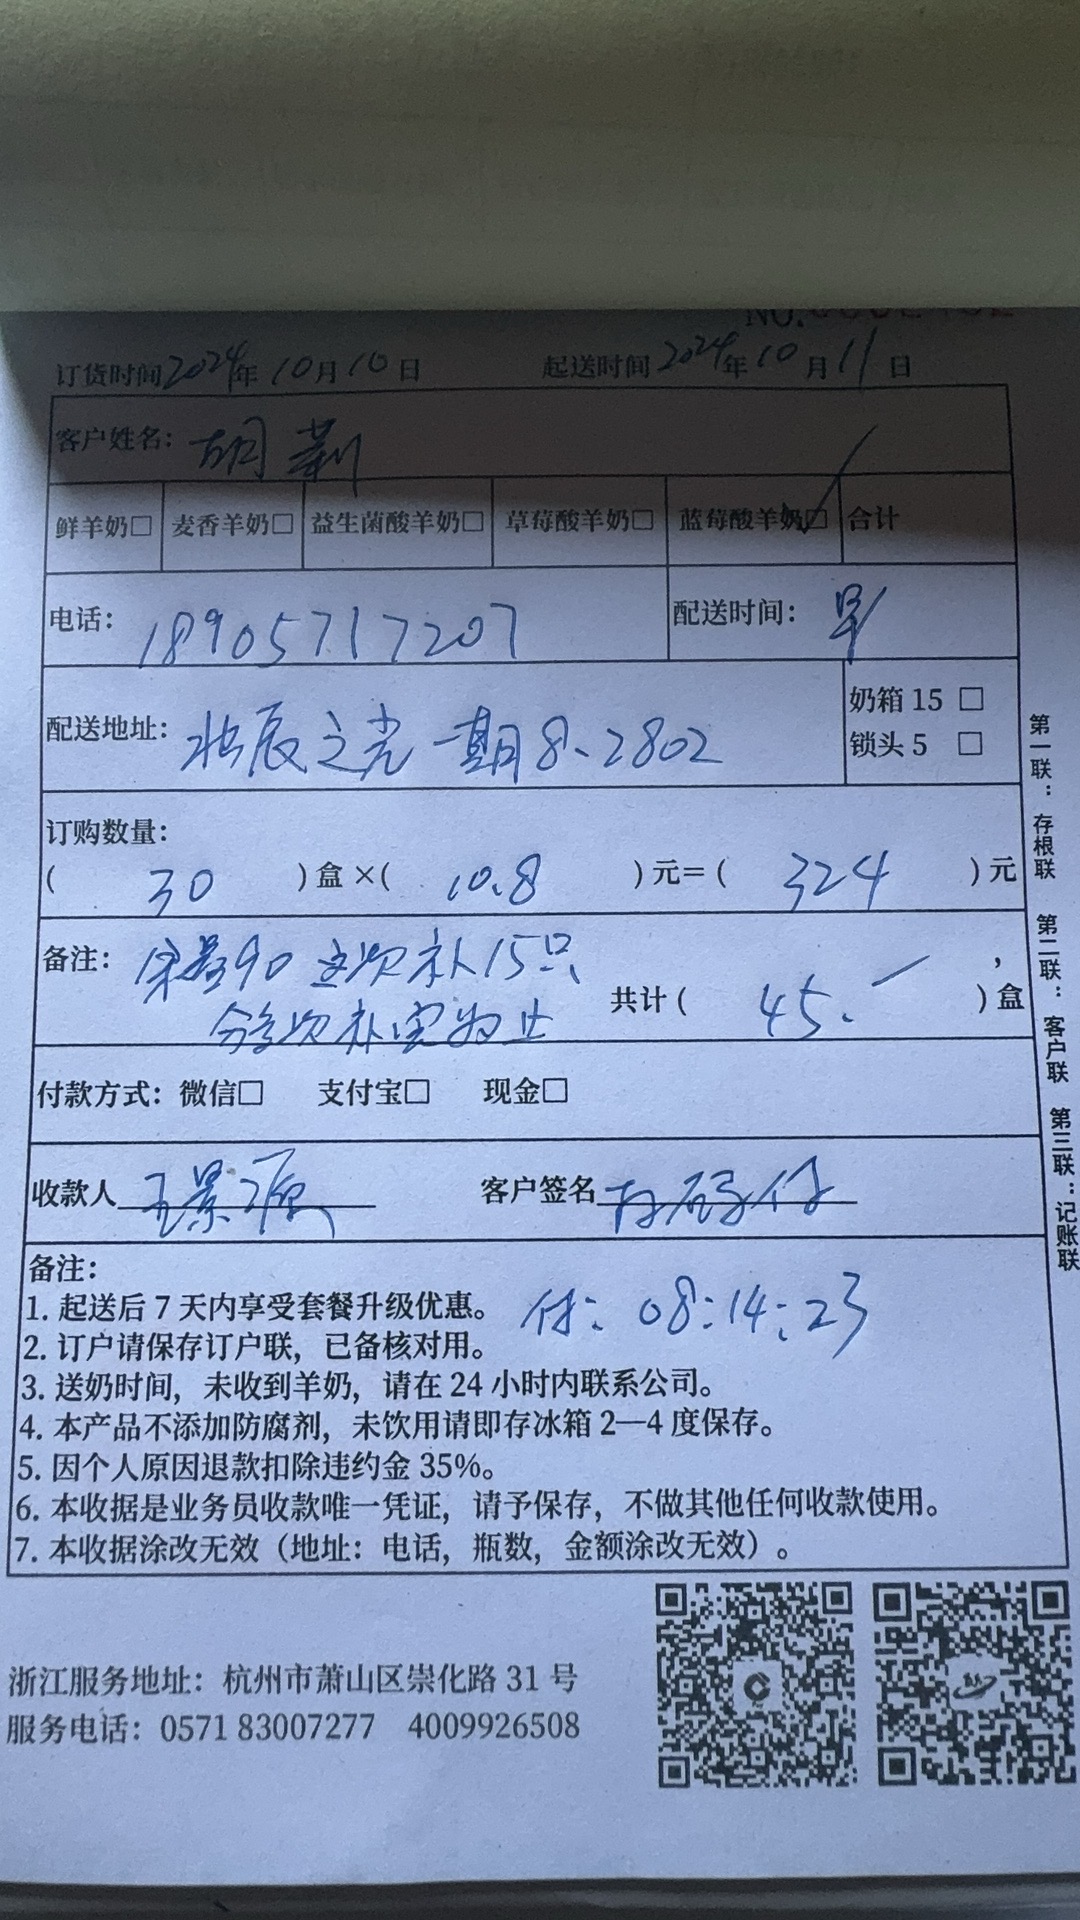 NO.
订货时间2024年10月10日 起送时间2024年10月11日
客户姓名：胡荆
鲜羊奶□ 麦香羊奶□ 益生菌酸羊奶□ 草莓酸羊奶□ 蓝莓酸羊奶□ 合计
电话：18905717207 配送时间：早
配送地址：北辰之光一期8、2802
奶箱 15 □
锁头 5 □
订购数量：
( 30 )盒×( 10.8 )元=( 324 )元
备注： 90 这次补15只
分多次补完为止
共计( 45. )盒
付款方式：微信□ 支付宝□ 现金□
收款人 王景源 客户签名
备注：
1. 起送后 7 天内享受套餐升级优惠。 付：08:14:23
2. 订户请保存订户联，已备核对用。
3. 送奶时间，未收到羊奶，请在 24 小时内联系公司。
4. 本产品不添加防腐剂，未饮用请即存冰箱 2—4 度保存。
5. 因个人原因退款扣除违约金 35%。
6. 本收据是业务员收款唯一凭证，请予保存，不做其他任何收款使用。
7. 本收据涂改无效（地址：电话，瓶数，金额涂改无效）。
第一联：存根联 第二联：客户联 第三联：记账联
浙江服务地址：杭州市萧山区崇化路 31 号
服务电话：0571 83007277 4009926508